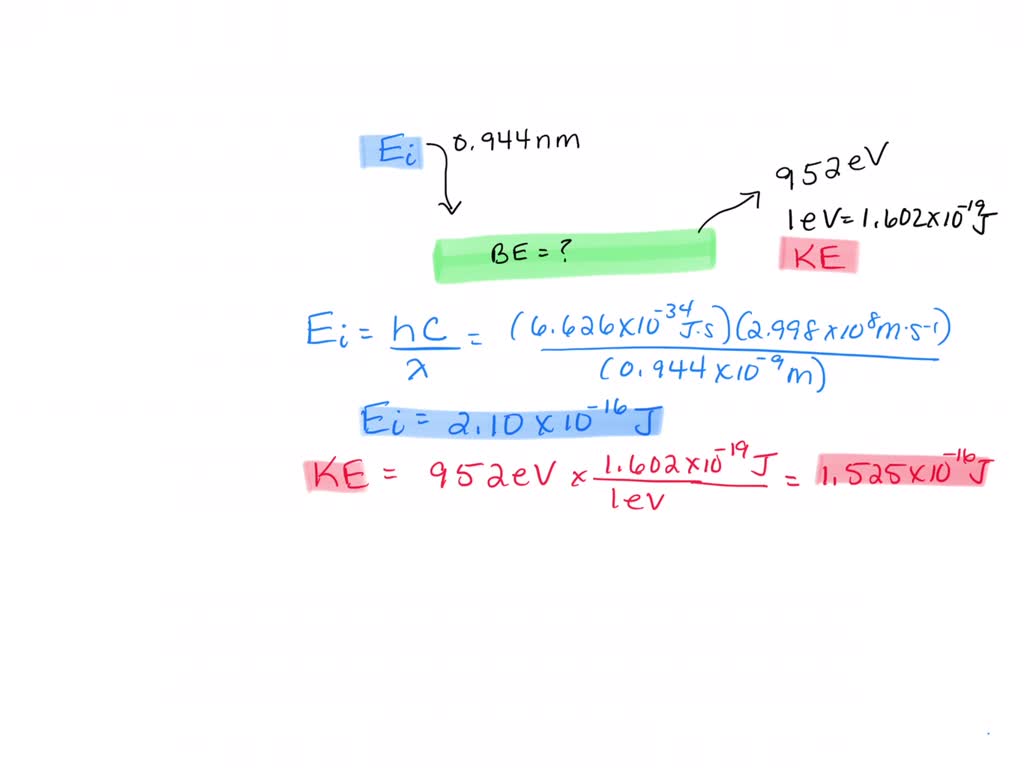 Ei 0.944nm
952eV
1eV=1.602x10⁻¹⁹J
BE=?
KE
Ei = hc/λ = (6.626x10⁻³⁴J·s)(2.998x10⁸m·s-1)/(0.944x10⁻⁹m)
Ei = 2.10x10⁻¹⁶J
KE = 952eV x 1.602x10⁻¹⁹J/1eV = 1.525x10⁻¹⁶J